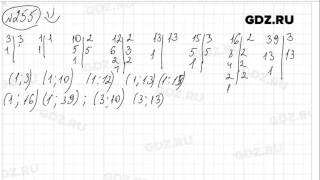 №255
GDZ.RU
3|3 1|1 10|2 12|2 13|13 15|3 16|2 39|3
1| 5|5 6|3 1| 5|5 8|2 13|13
1| 2|2 1| 4|2 1|
1| 2|2
1|
(1;3) (1;10) (1;12) (1;13) (1;15)
(1;16) (1;39); (3;10) (3;13)